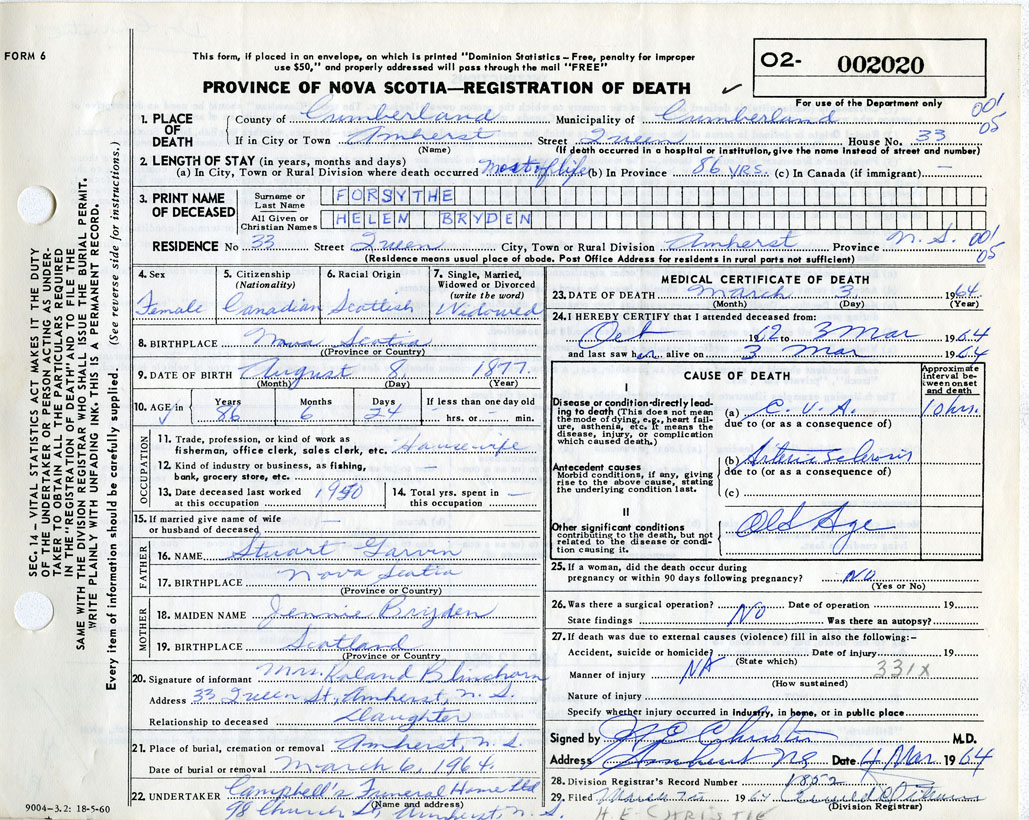 FORM 6
This form, if placed in an envelope, on which is printed "Dominion Statistics – Free, penalty for improper
use $50," and properly addressed will pass through the mail "FREE"
O2- 002020
PROVINCE OF NOVA SCOTIA—REGISTRATION OF DEATH ✓
For use of the Department only
001
05
1. PLACE OF DEATH
County of Cumberland Municipality of Cumberland
If in City or Town Amherst Street Queen House No. 33
(Name) (If death occurred in a hospital or institution, give the name instead of street and number)
2. LENGTH OF STAY (in years, months and days)
(a) In City, Town or Rural Division where death occurred Most of life (b) In Province 86 yrs. (c) In Canada (if immigrant) —
3. PRINT NAME OF DECEASED
Surname or Last Name FORSYTHE
All Given or Christian Names HELEN BRYDEN
RESIDENCE No 33 Street Queen City, Town or Rural Division Amherst Province N.S. 001
05
(Residence means usual place of abode. Post Office Address for residents in rural parts not sufficient)
4. Sex
Female
5. Citizenship
(Nationality)
Canadian
6. Racial Origin
Scottish
7. Single, Married,
Widowed or Divorced
(write the word)
Widowed
8. BIRTHPLACE Nova Scotia
(Province or Country)
9. DATE OF BIRTH August 8 1877
(Month) (Day) (Year)
10. AGE in Years 86 Months 6 Days 24 If less than one day old
hrs. or min.
OCCUPATION
11. Trade, profession, or kind of work as
fisherman, office clerk, sales clerk, etc. Housewife
12. Kind of industry or business, as fishing,
bank, grocery store, etc. —
13. Date deceased last worked
at this occupation 1950
14. Total yrs. spent in
this occupation —
15. If married give name of wife
or husband of deceased —
FATHER
16. NAME Stuart Garvin
17. BIRTHPLACE Nova Scotia
(Province or Country)
MOTHER
18. MAIDEN NAME Jennie Bryden
19. BIRTHPLACE Scotland
(Province or Country)
20. Signature of informant Mrs. Roland Blenkhorn
Address 33 Queen St, Amherst, N.S.
Relationship to deceased Daughter
21. Place of burial, cremation or removal Amherst, N.S.
Date of burial or removal March 6, 1964.
22. UNDERTAKER Campbell's Funeral Home Ltd
(Name and address)
98 Church St, Amherst, N.S.
MEDICAL CERTIFICATE OF DEATH
23. DATE OF DEATH March 3 1964
(Month) (Day) (Year)
24. I HEREBY CERTIFY that I attended deceased from:
Oct 1962 to 3 Mar 1964
and last saw her alive on 3 Mar 1964
CAUSE OF DEATH
Approximate
interval be-
tween onset
and death
I
Disease or condition directly lead-
ing to death (This does not mean
the mode of dying, e.g., heart fail-
ure, asthenia, etc. It means the
disease, injury, or complication
which caused death.)
(a) C.V.A. 10 hrs.
due to (or as a consequence of)
Antecedent causes
Morbid conditions, if any, giving
rise to the above cause, stating
the underlying condition last.
(b) Arteriosclerosis
due to (or as a consequence of)
(c)
II
Other significant conditions
contributing to the death, but not
related to the disease or condi-
tion causing it.
Old Age
25. If a woman, did the death occur during
pregnancy or within 90 days following pregnancy? NO
(Yes or No)
26. Was there a surgical operation? No Date of operation 19
State findings Was there an autopsy?
27. If death was due to external causes (violence) fill in also the following:–
Accident, suicide or homicide? Date of injury 19
(State which)
Manner of injury NA 331X
(How sustained)
Nature of injury
Specify whether injury occurred in industry, in home, or in public place
Signed by Christie M.D.
Address Amherst NS Date 4 Mar 1964
28. Division Registrar's Record Number 1852
29. Filed March 7th 1964
(Division Registrar)
H.E. CHRISTIE
SEC. 14 – VITAL STATISTICS ACT MAKES IT THE DUTY
OF THE UNDERTAKER OR PERSON ACTING AS UNDER-
TAKER TO OBTAIN ALL THE PARTICULARS REQUIRED
IN THE "REGISTRATION OF DEATH" AND TO FILE THE
SAME WITH THE DIVISION REGISTRAR WHO SHALL ISSUE THE BURIAL PERMIT.
WRITE PLAINLY WITH UNFADING INK. THIS IS A PERMANENT RECORD.
Every item of information should be carefully supplied. (See reverse side for instructions.)
9004-3.2: 18-5-60